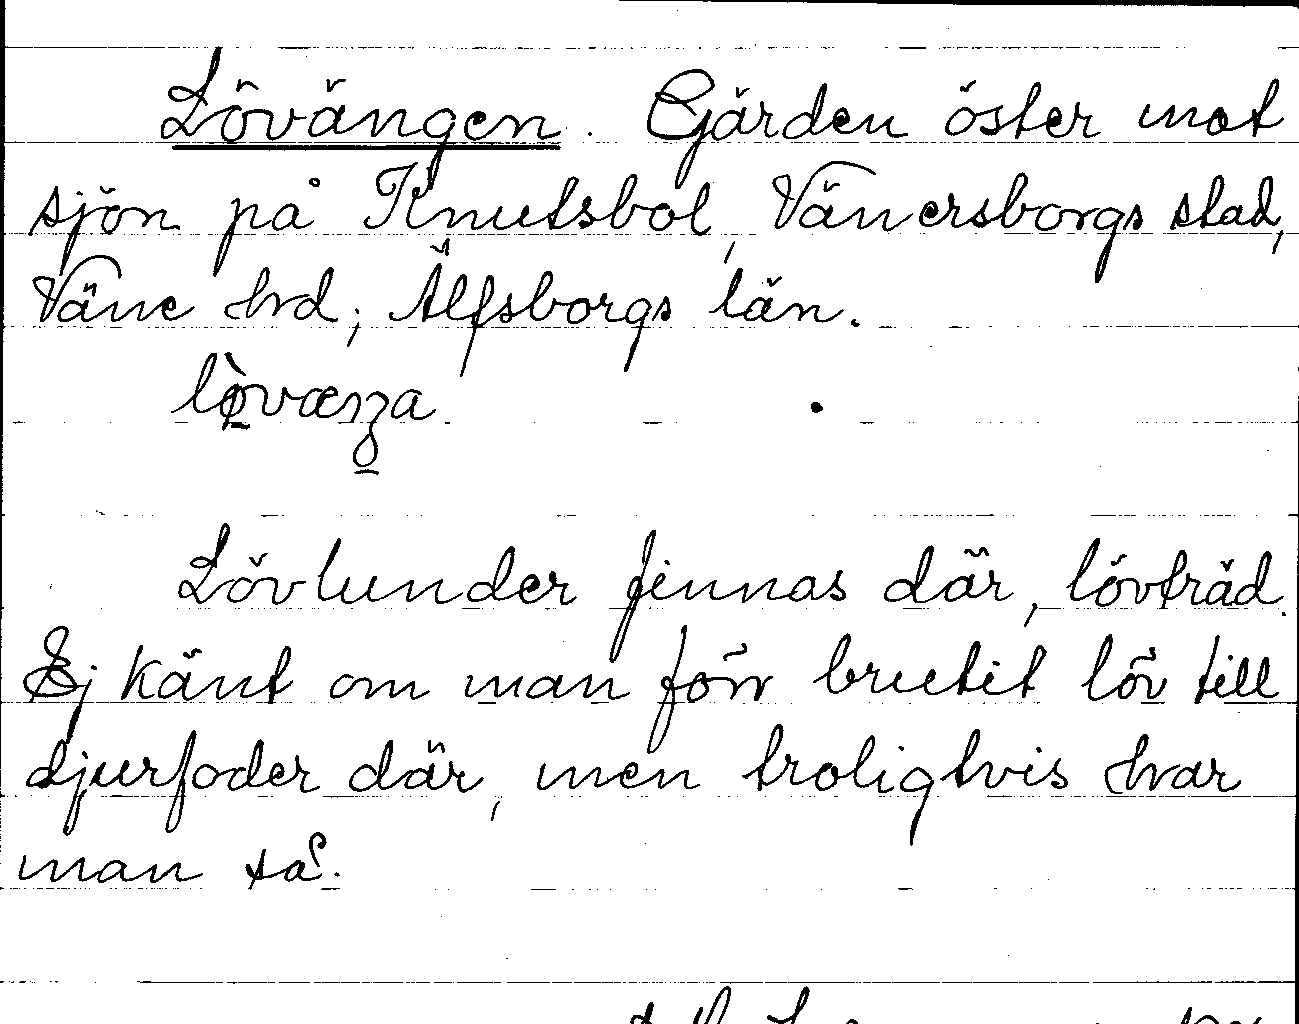 Lövängen. Gärden öster mot
sjön på Knutsbol, Vänersborgs stad,
Väne hrd; Älfsborgs län.
Lövlunder finnas där, lövträd.
Ej känt om man förr brutit löv till
djurfoder där, men troligtvis har
man så.